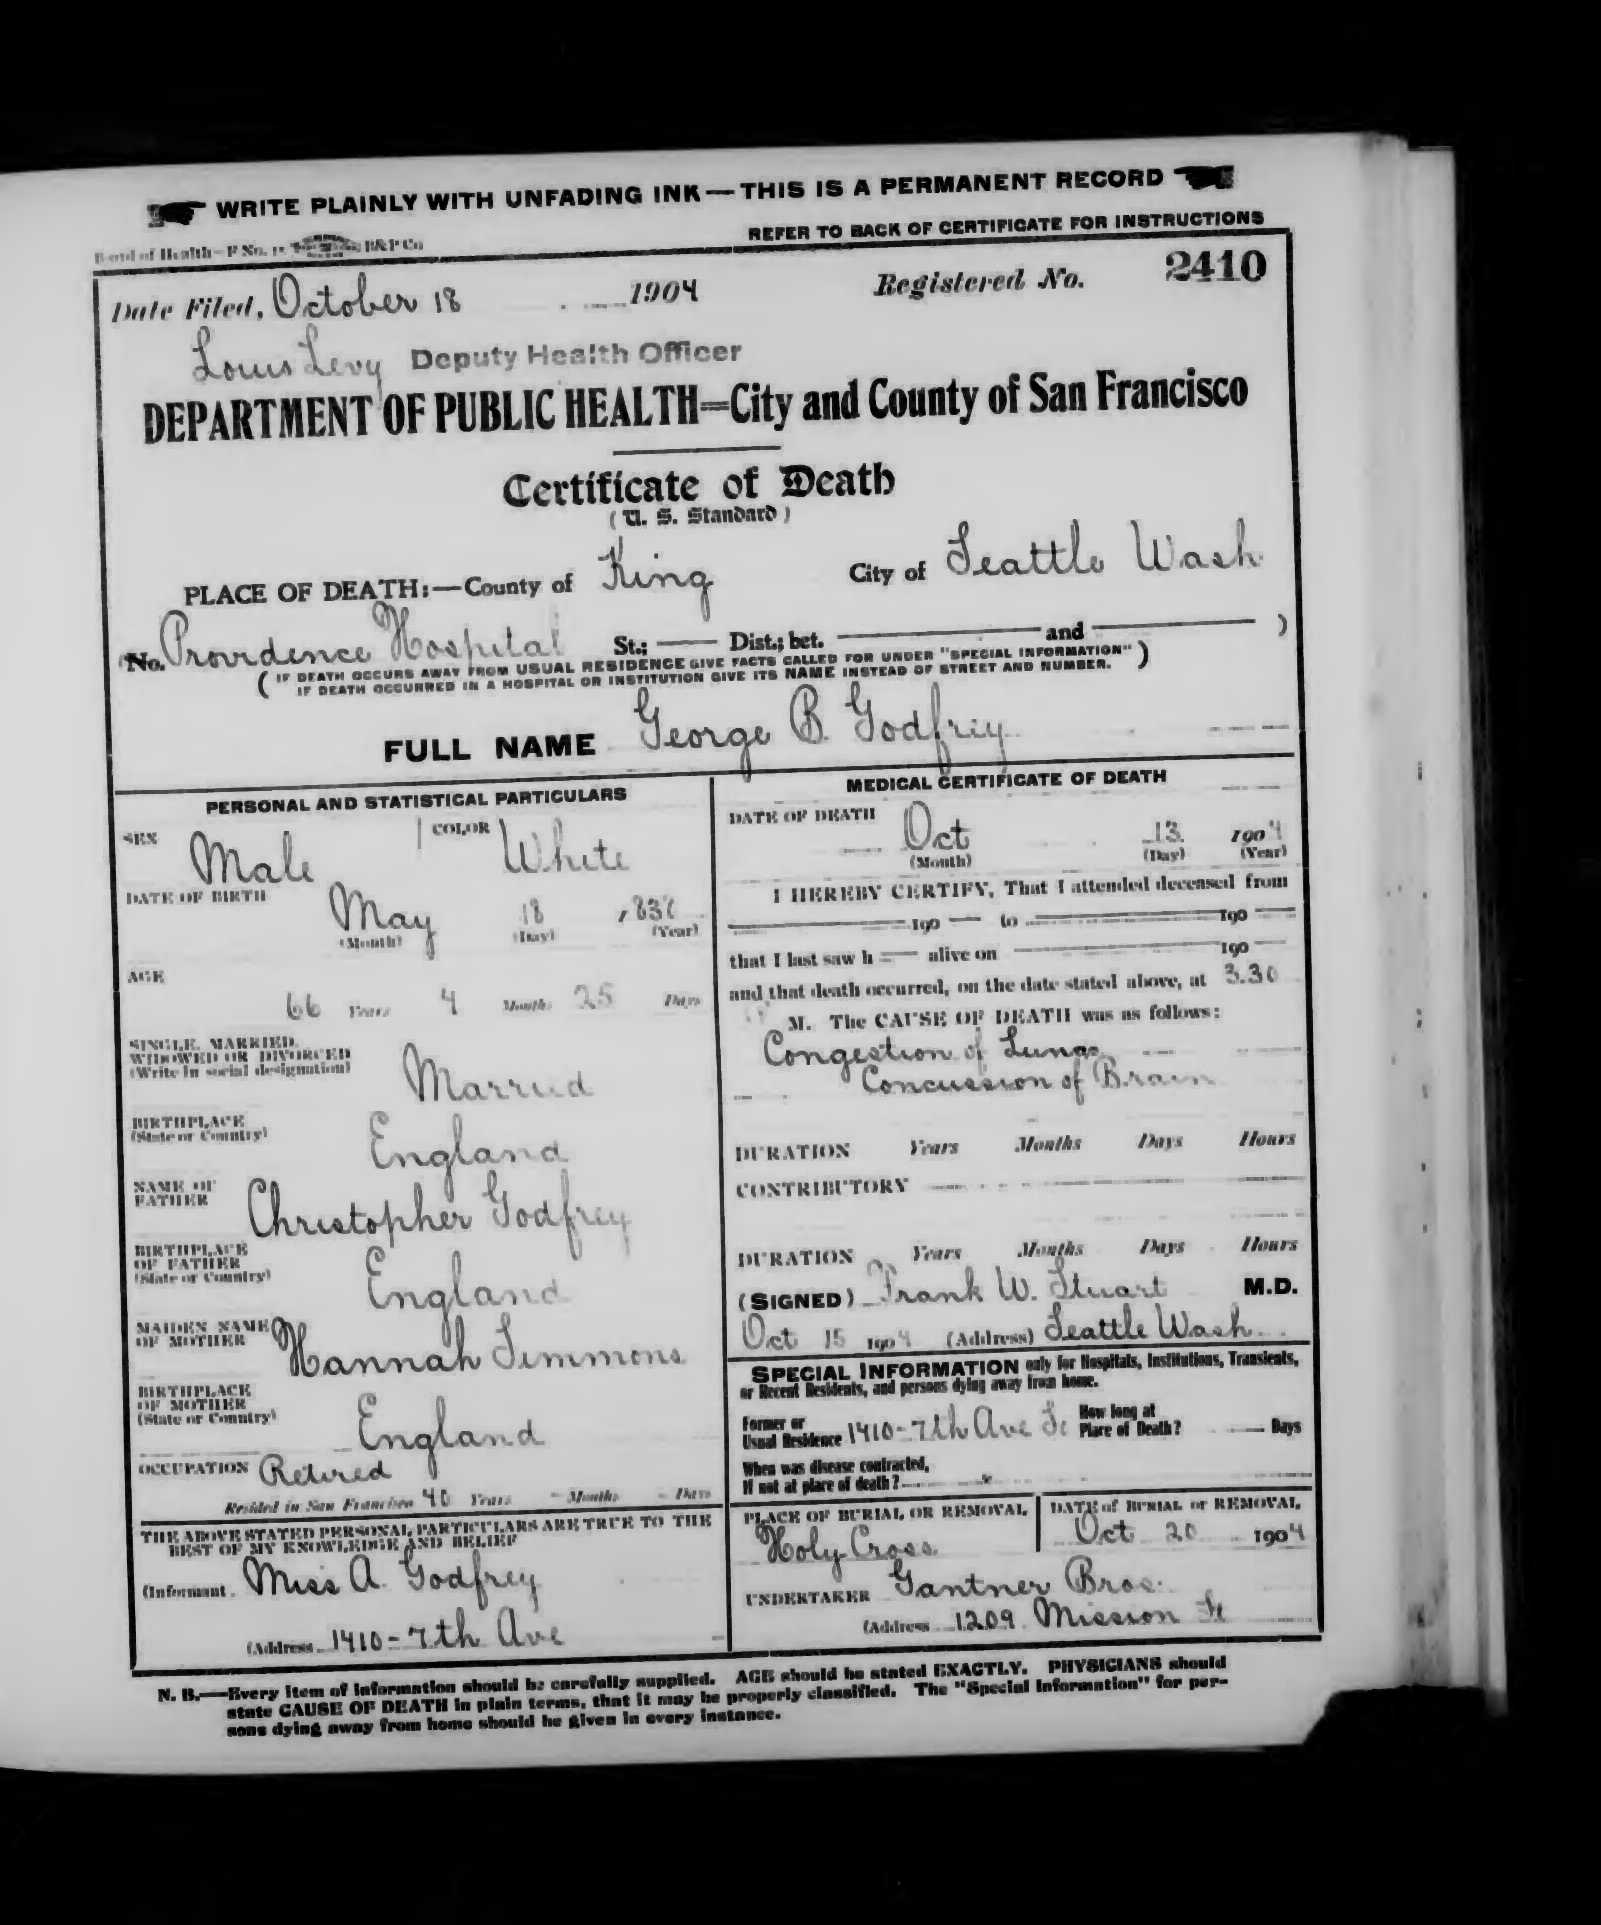 WRITE PLAINLY WITH UNFADING INK — THIS IS A PERMANENT RECORD
Board of Health—F No. B&P Co
REFER TO BACK OF CERTIFICATE FOR INSTRUCTIONS
Date Filed, October 18 1904 Registered No. 2410
Louis Levy Deputy Health Officer
DEPARTMENT OF PUBLIC HEALTH=City and County of San Francisco
Certificate of Death
( U. S. Standard )
PLACE OF DEATH:—County of King City of Seattle Wash
(No. Providence Hospital St.; —— Dist.; bet. —— and —— )
( IF DEATH OCCURS AWAY FROM USUAL RESIDENCE GIVE FACTS CALLED FOR UNDER "SPECIAL INFORMATION" )
IF DEATH OCCURRED IN A HOSPITAL OR INSTITUTION GIVE ITS NAME INSTEAD OF STREET AND NUMBER.
FULL NAME George B. Godfrey
PERSONAL AND STATISTICAL PARTICULARS
SEX Male COLOR White
DATE OF BIRTH May 18 , 838
(Month) (Day) (Year)
AGE
66 Years 4 Months 25 Days
SINGLE, MARRIED,
WIDOWED OR DIVORCED
(Write in social designation) Married
BIRTHPLACE
(State or Country) England
NAME OF
FATHER Christopher Godfrey
BIRTHPLACE
OF FATHER
(State or Country) England
MAIDEN NAME
OF MOTHER Hannah Simmons
BIRTHPLACE
OF MOTHER
(State or Country) England
OCCUPATION Retired
Resided in San Francisco 40 Years - Months - Days
THE ABOVE STATED PERSONAL PARTICULARS ARE TRUE TO THE
BEST OF MY KNOWLEDGE AND BELIEF
(Informant Miss A. Godfrey
(Address 1410-7th Ave
MEDICAL CERTIFICATE OF DEATH
DATE OF DEATH Oct 13 1904
(Month) (Day) (Year)
I HEREBY CERTIFY, That I attended deceased from
——190 — to ——190 —
that I last saw h — alive on ——190 —
and that death occurred, on the date stated above, at 3.30
M. The CAUSE OF DEATH was as follows:
Congestion of Lungs
Concussion of Brain
DURATION Years Months Days Hours
CONTRIBUTORY
DURATION Years Months Days Hours
(SIGNED) Frank W. Stuart M.D.
Oct 15 1904 (Address) Seattle Wash.
SPECIAL INFORMATION only for Hospitals, Institutions, Transients,
or Recent Residents, and persons dying away from home.
Former or
Usual Residence 1410-7th Ave
How long at
Place of Death? —— Days
When was disease contracted,
If not at place of death?
PLACE OF BURIAL OR REMOVAL
Holy Cross
DATE of BURIAL or REMOVAL
Oct 20 1904
UNDERTAKER Gantner Bros.
(Address 1209 Mission St
N. B.—Every item of information should be carefully supplied. AGE should be stated EXACTLY. PHYSICIANS should
state CAUSE OF DEATH in plain terms, that it may be properly classified. The "Special Information" for per-
sons dying away from home should be given in every instance.